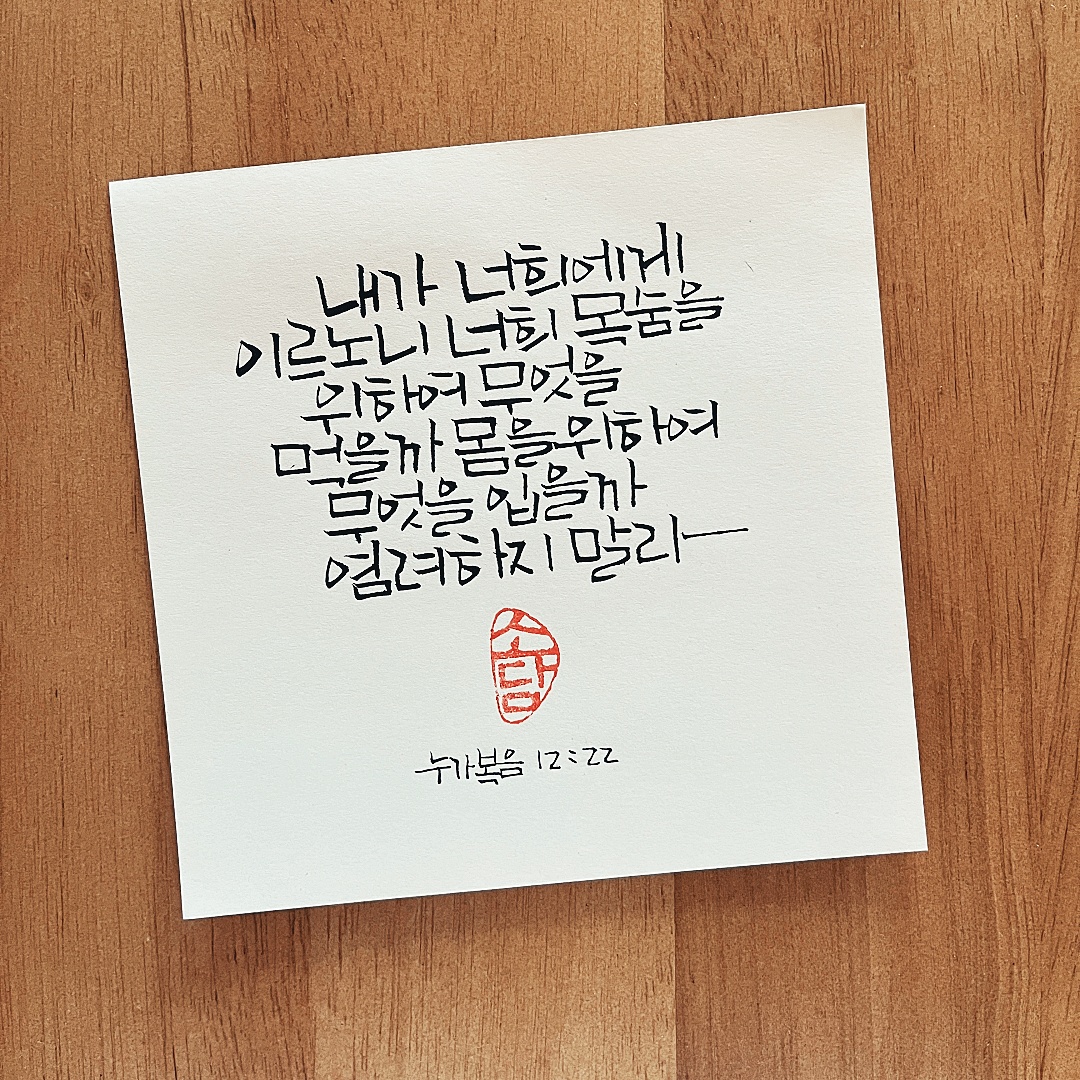 내가 너희에게
이르노니 너희 목숨을
위하여 무엇을
먹을까 몸을 위하여
무엇을 입을까
염려하지 말라
소담
누가복음 12:22